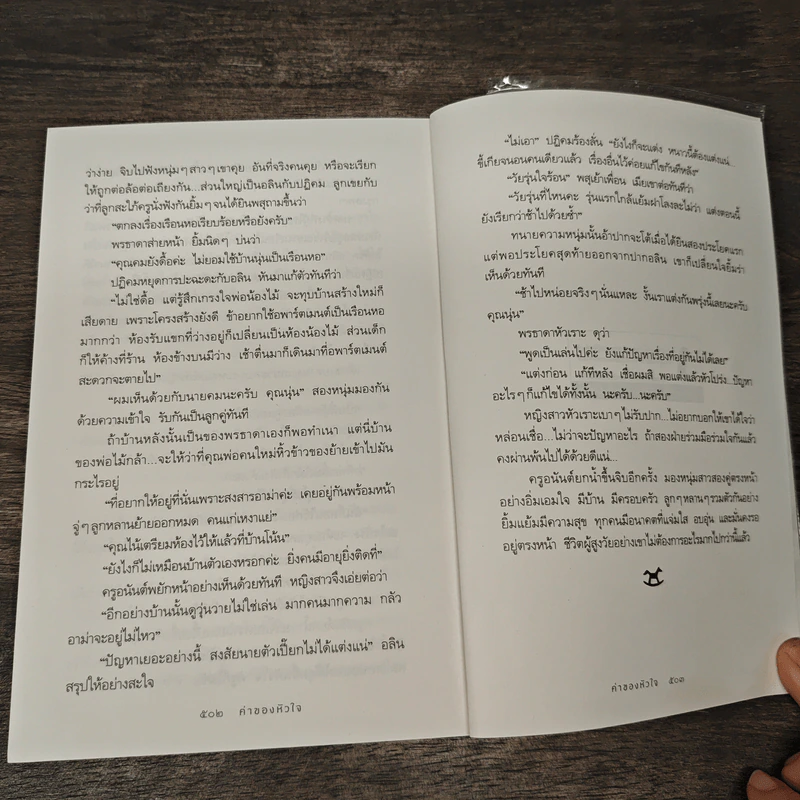 ว่าง่าย จิบไปฟังหนุ่มๆสาวๆเขาคุย อันที่จริงคนคุย หรือจะเรียก
ให้ถูกต่อล้อต่อเถียงกัน...ส่วนใหญ่เป็นอลินกับปฏิคม ลูกเขยกับ
ว่าที่ลูกสะใภ้ครูนั่งฟังกันยิ้มๆจนได้ยินพสุถามขึ้นว่า
“ตกลงเรื่องเรือนหอเรียบร้อยหรือยังครับ”
พรธาดาส่ายหน้า ยิ้มนิดๆ บ่นว่า
“คุณคมยังดื้อค่ะ ไม่ยอมใช้บ้านนุ่นเป็นเรือนหอ”
ปฏิคมหยุดการปะฉะดะกับอลิน หันมาแก้ตัวทันทีว่า
“ไม่ใช่ดื้อ แต่รู้สึกเกรงใจพ่อน้องไม้ จะทุบบ้านสร้างใหม่ก็
เสียดาย เพราะโครงสร้างยังดี ข้าอยากใช้อพาร์ตเมนต์เป็นเรือนหอ
มากกว่า ห้องรับแขกที่ว่างอยู่ก็เปลี่ยนเป็นห้องน้องไม้ ส่วนเด็ก
ก็ให้ค้างที่ร้าน ห้องข้างบนมีว่าง เช้าตื่นมาก็เดินมาที่อพาร์ตเมนต์
สะดวกจะตายไป”
“ผมเห็นด้วยกับนายคมนะครับ คุณนุ่น” สองหนุ่มมองกัน
ด้วยความเข้าใจ รับกันเป็นลูกคู่ทันที
ถ้าบ้านหลังนั้นเป็นของพรธาดาเองก็พอทำเนา แต่นี่บ้าน
ของพ่อไม้กล้า...จะให้ว่าที่คุณพ่อคนใหม่หิ้วข้าวของย้ายเข้าไปมัน
กระไรอยู่
“ที่อยากให้อยู่ที่นั่นเพราะสงสารอาม่าค่ะ เคยอยู่กันพร้อมหน้า
จู่ๆลูกหลานย้ายออกหมด คนแก่เหงาแย่”
“คุณไน้เตรียมห้องไว้ให้แล้วที่บ้านโน้น”
“ยังไงก็ไม่เหมือนบ้านตัวเองหรอกค่ะ ยิ่งคนมีอายุยิ่งติดที่”
ครูอนันต์พยักหน้าอย่างเห็นด้วยทันที หญิงสาวจึงเอ่ยต่อว่า
“อีกอย่างบ้านนั้นดูวุ่นวายไม่ใช่เล่น มากคนมากความ กลัว
อาม่าจะอยู่ไม่ไหว”
“ปัญหาเยอะอย่างนี้ สงสัยนายตัวเปี๊ยกไม่ได้แต่งแน่” อลิน
สรุปให้อย่างสะใจ
๕๐๒ ค่าของหัวใจ
“ไม่เอา” ปฏิคมร้องลั่น “ยังไงก็จะแต่ง หนาวนี้ต้องแต่งแน่..
ขี้เกียจนอนคนเดียวแล้ว เรื่องอื่นไว้ค่อยแก้ไขกันทีหลัง”
“วัยรุ่นใจร้อน” พสุเย้าเพื่อน เมียเขาต่อทันทีว่า
“วัยรุ่นที่ไหนคะ รุ่นแรกใกล้แย้มฝาโลงละไม่ว่า แต่งตอนนี้
ยังเรียกว่าช้าไปด้วยซ้ำ”
ทนายความหนุ่มนั้นอ้าปากจะโต้เมื่อได้ยินสองประโยคแรก
แต่พอประโยคสุดท้ายออกจากปากอลิน เขาก็เปลี่ยนใจยิ้มร่า
เห็นด้วยทันที
“ช้าไปหน่อยจริงๆนั่นแหละ งั้นเราแต่งกันพรุ่งนี้เลยนะครับ
คุณนุ่น”
พรธาดาหัวเราะ ดุว่า
“พูดเป็นเล่นไปค่ะ ยังแก้ปัญหาเรื่องที่อยู่กันไม่ได้เลย”
“แต่งก่อน แก้ทีหลัง เชื่อผมสิ พอแต่งแล้วหัวโปร่ง...ปัญหา
อะไรๆก็แก้ไขได้ทั้งนั้น นะครับ...นะครับ”
หญิงสาวหัวเราะเบาๆไม่รับปาก...ไม่อยากบอกให้เขาได้ใจว่า
หล่อนเชื่อ...ไม่ว่าจะปัญหาอะไร ถ้าสองฝ่ายร่วมมือร่วมใจกันแล้ว
คงผ่านพ้นไปได้ด้วยดีแน่...
ครูอนันต์ยกน้ำขึ้นจิบอีกครั้ง มองหนุ่มสาวสองคู่ตรงหน้า
อย่างอิ่มเอมใจ มีบ้าน มีครอบครัว ลูกๆหลานๆรวมตัวกันอย่าง
ยิ้มแย้มมีความสุข ทุกคนมีอนาคตที่แจ่มใส อบอุ่น และมั่นคงรอ
อยู่ตรงหน้า ชีวิตผู้สูงวัยอย่างเขาไม่ต้องการอะไรมากไปกว่านี้แล้ว
ค่าของหัวใจ ๕๐๓